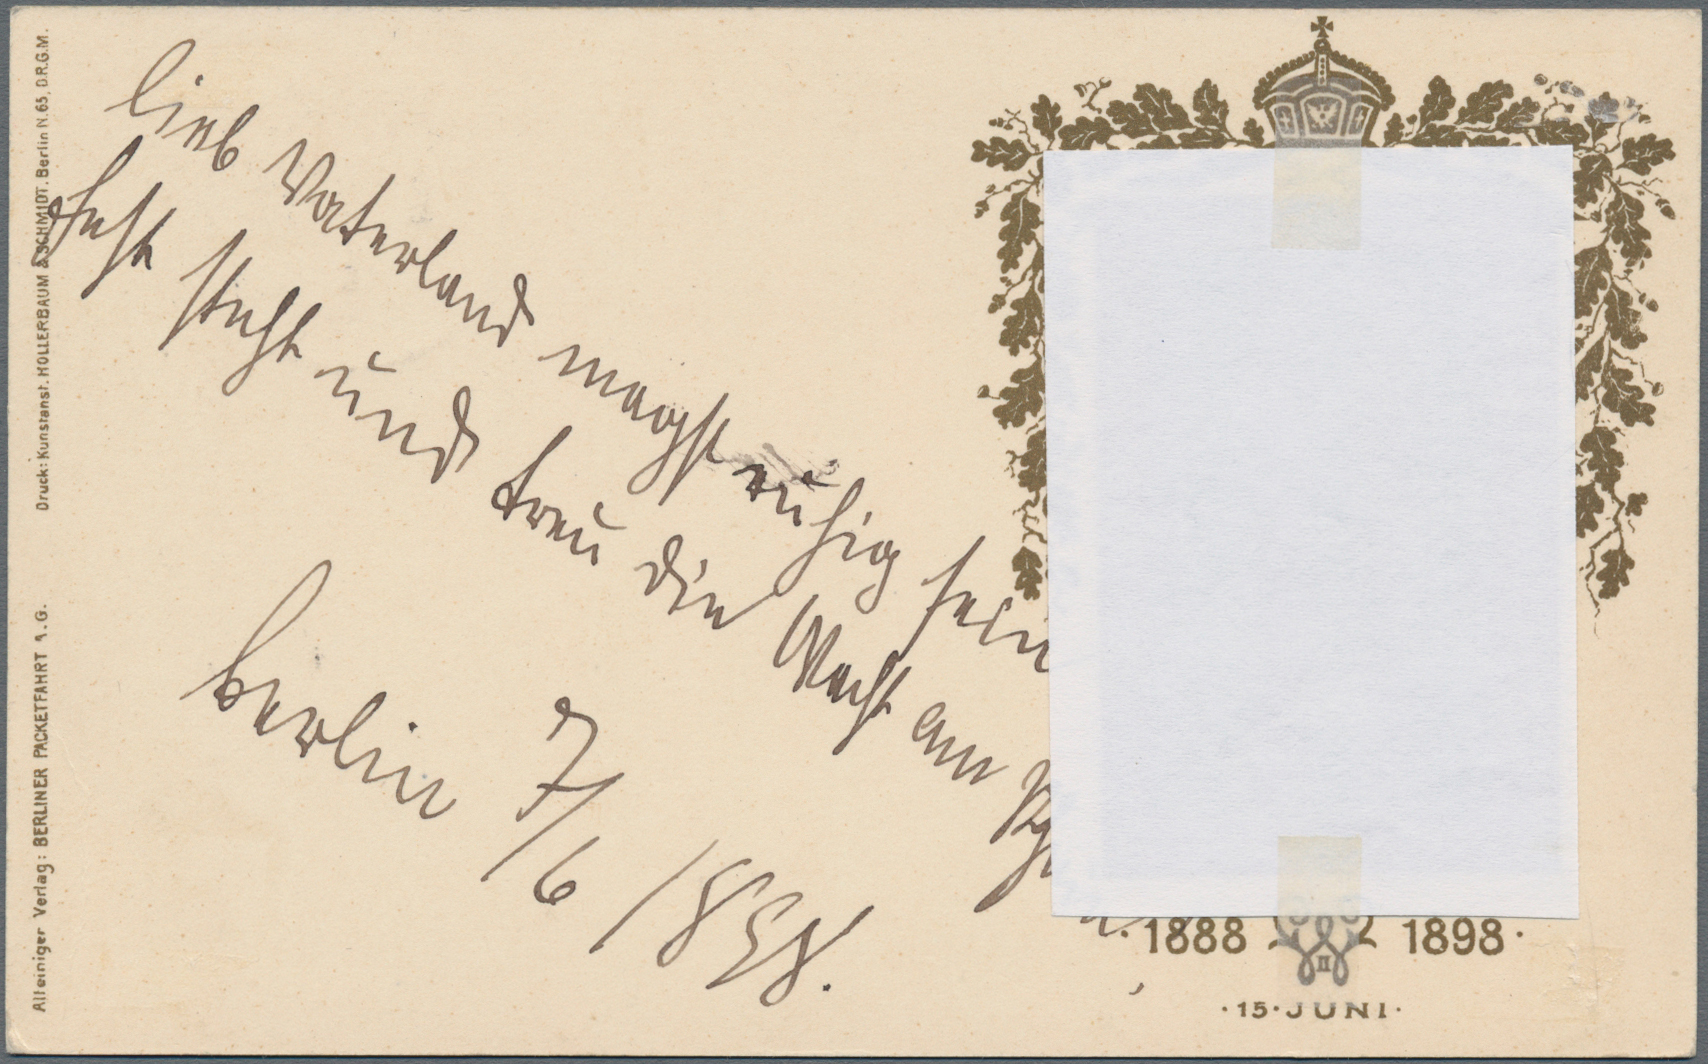 lieb Vaterland magst ruhig sein
Fest steht und treu die Wacht am Rh
Berlin 7/6 1898.
1888 1898.
II
·15·JUNI·
Druck: Kunstanst. HOLLERBAUM & SCHMIDT. Berlin N.65, D.R.G.M.
Alleiniger Verlag: BERLINER PACKETFAHRT A.G.